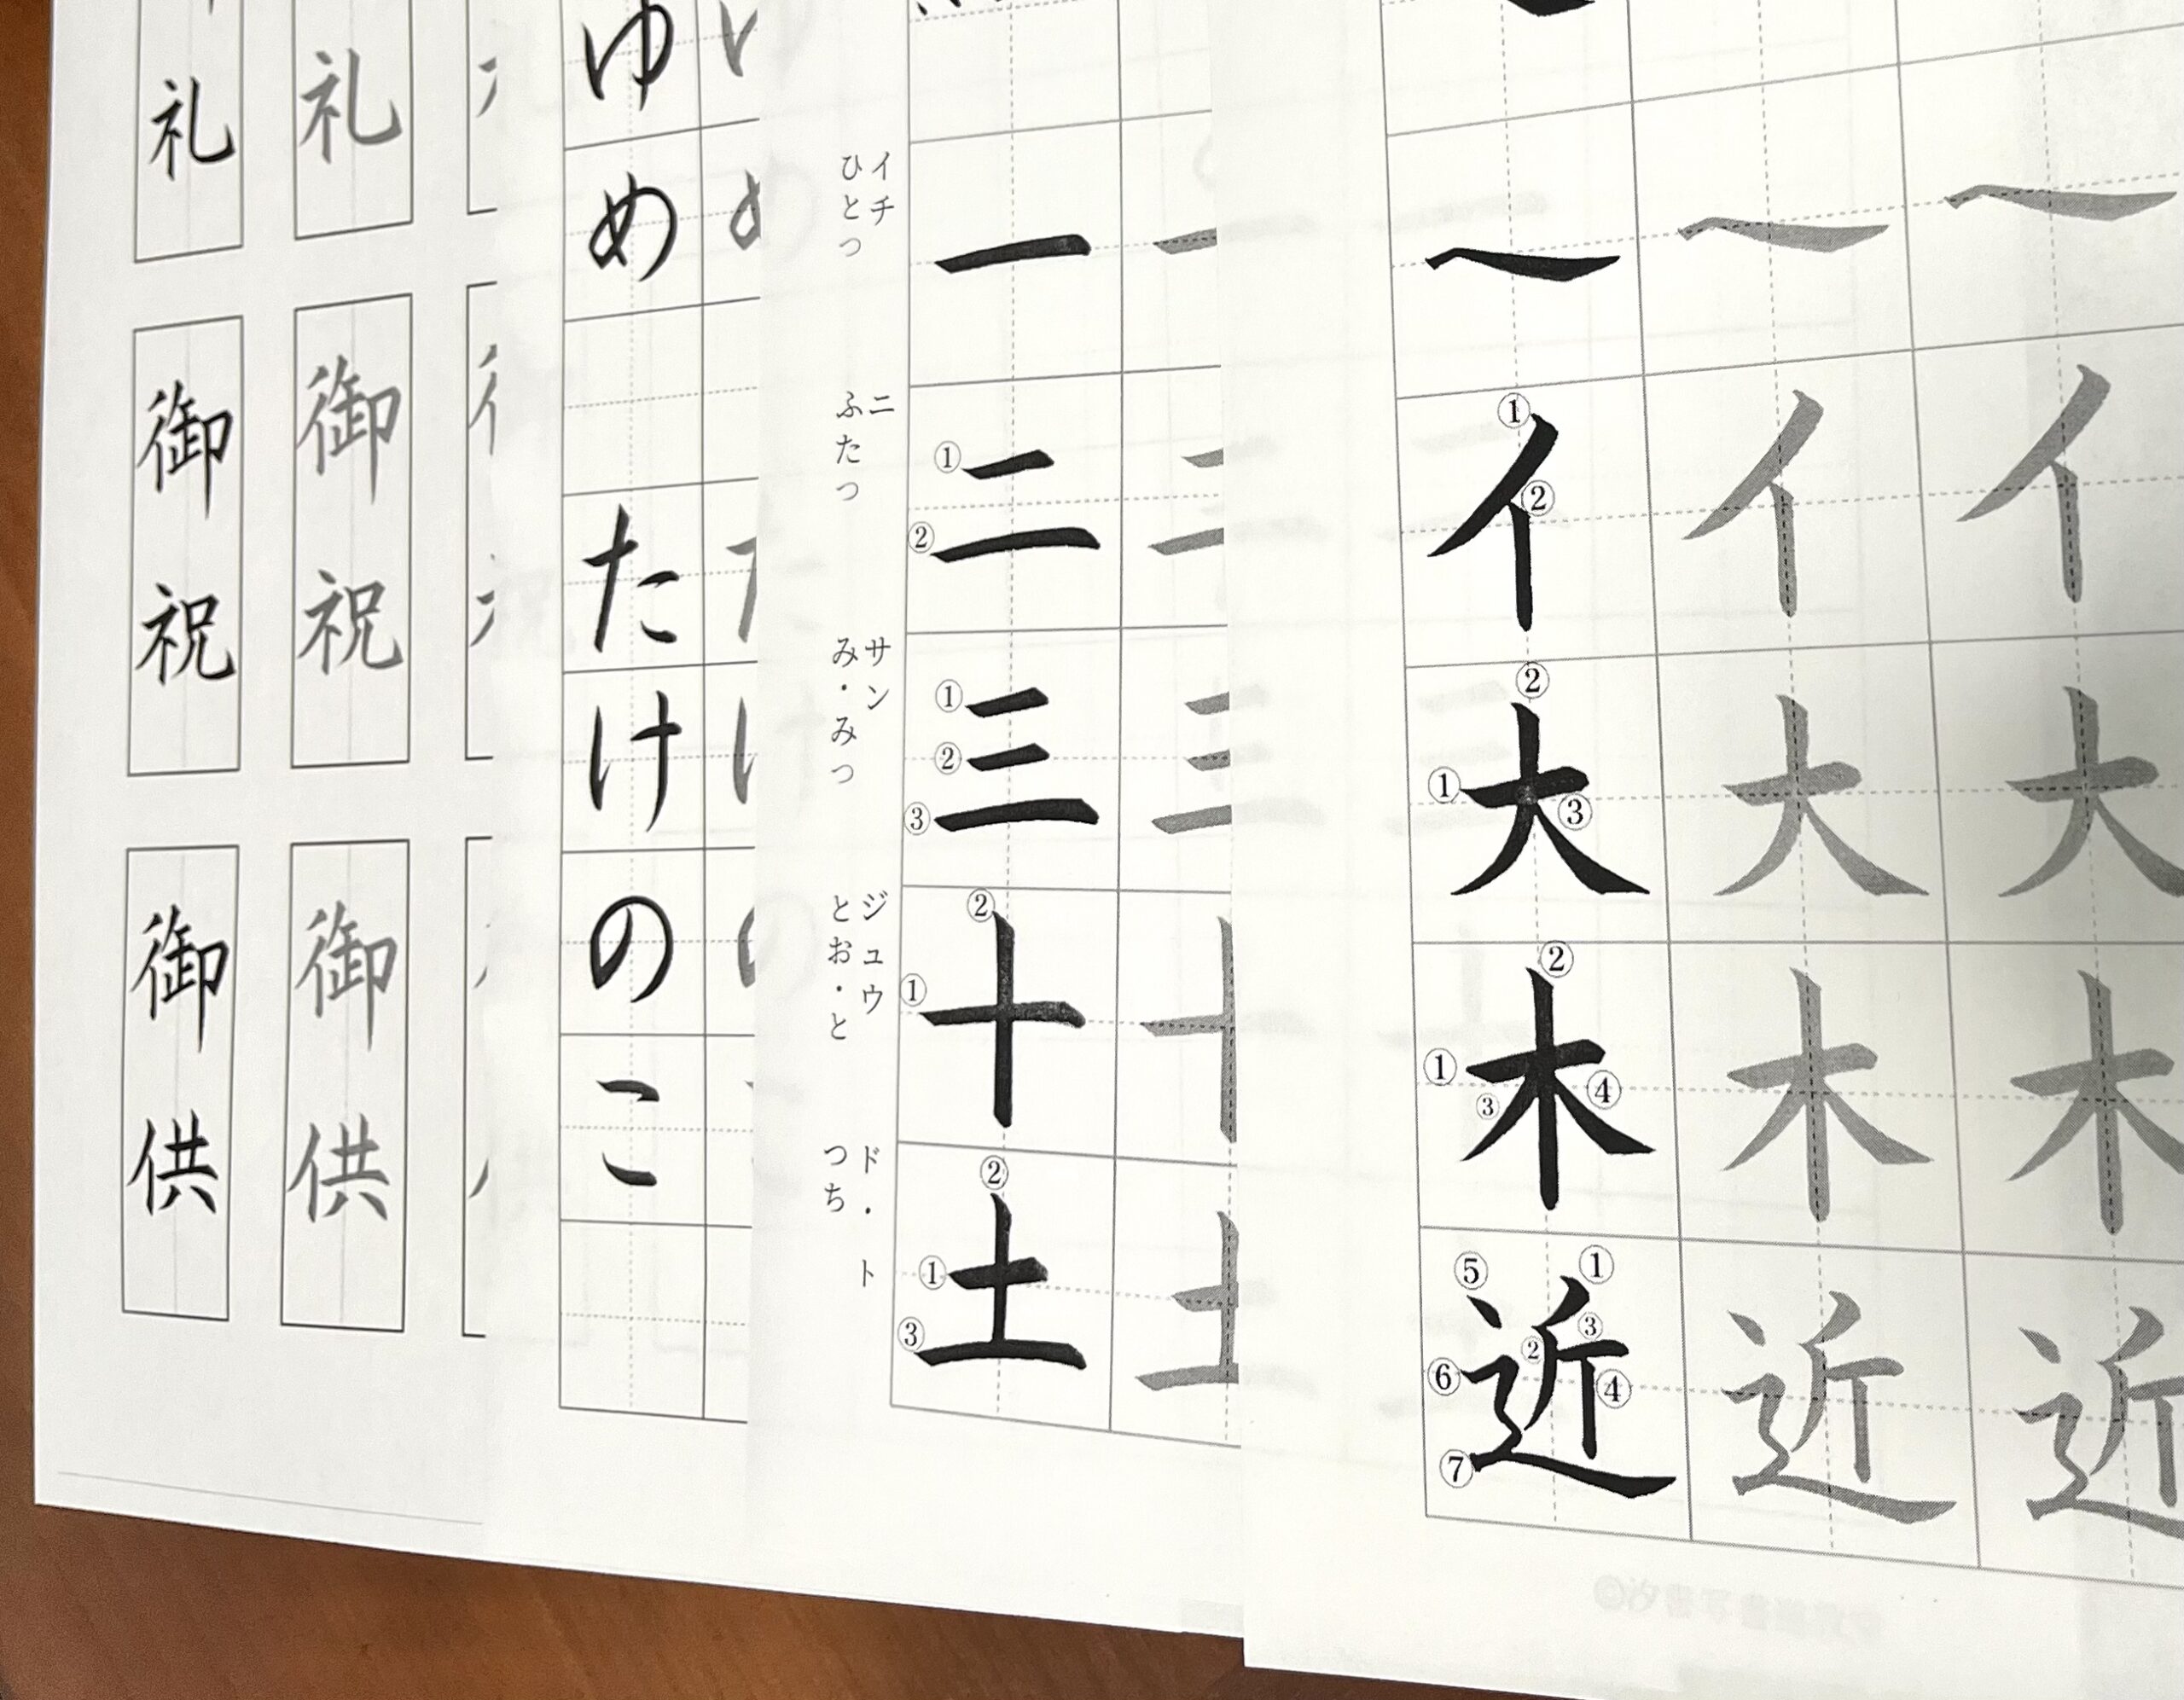 礼
礼
御祝
御祝
御供
御供
ゆ
め
たけのこ
イチ
ひとつ
一
ニ
ふたつ
① ②
二
サン
み・みつ
① ② ③
三
ジュウ
とお・と
① ②
十
ド・ト
つち
① ② ③
土
① ②
イ イ イ
① ② ③
大 大 大
① ② ③ ④
木 木 木
① ② ③ ④ ⑤ ⑥ ⑦
近 近 近